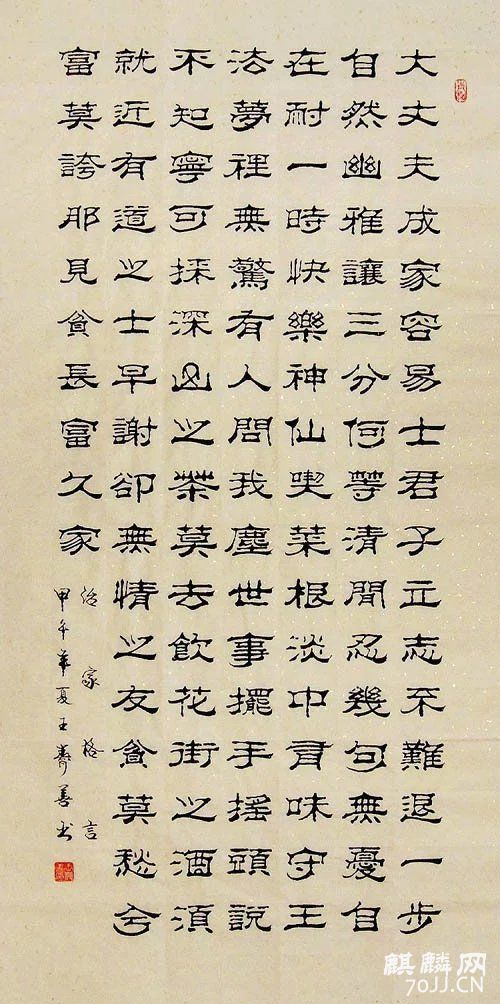 大丈夫成家容易士君子立志不難退一步
自然幽雅讓三分何等清閒忍幾句無憂自
在耐一時快樂神仙喫菜根淡中有味守王
法夢裡無驚有人問我塵世事擺手搖頭說
不知寧可採深山之茶莫去飲花街之酒須
就近有道之士早謝卻無情之友貧莫愁兮
富莫誇那見貧長富久家
治家格言
甲午年夏王善书
麒麟网
70JJ.CN